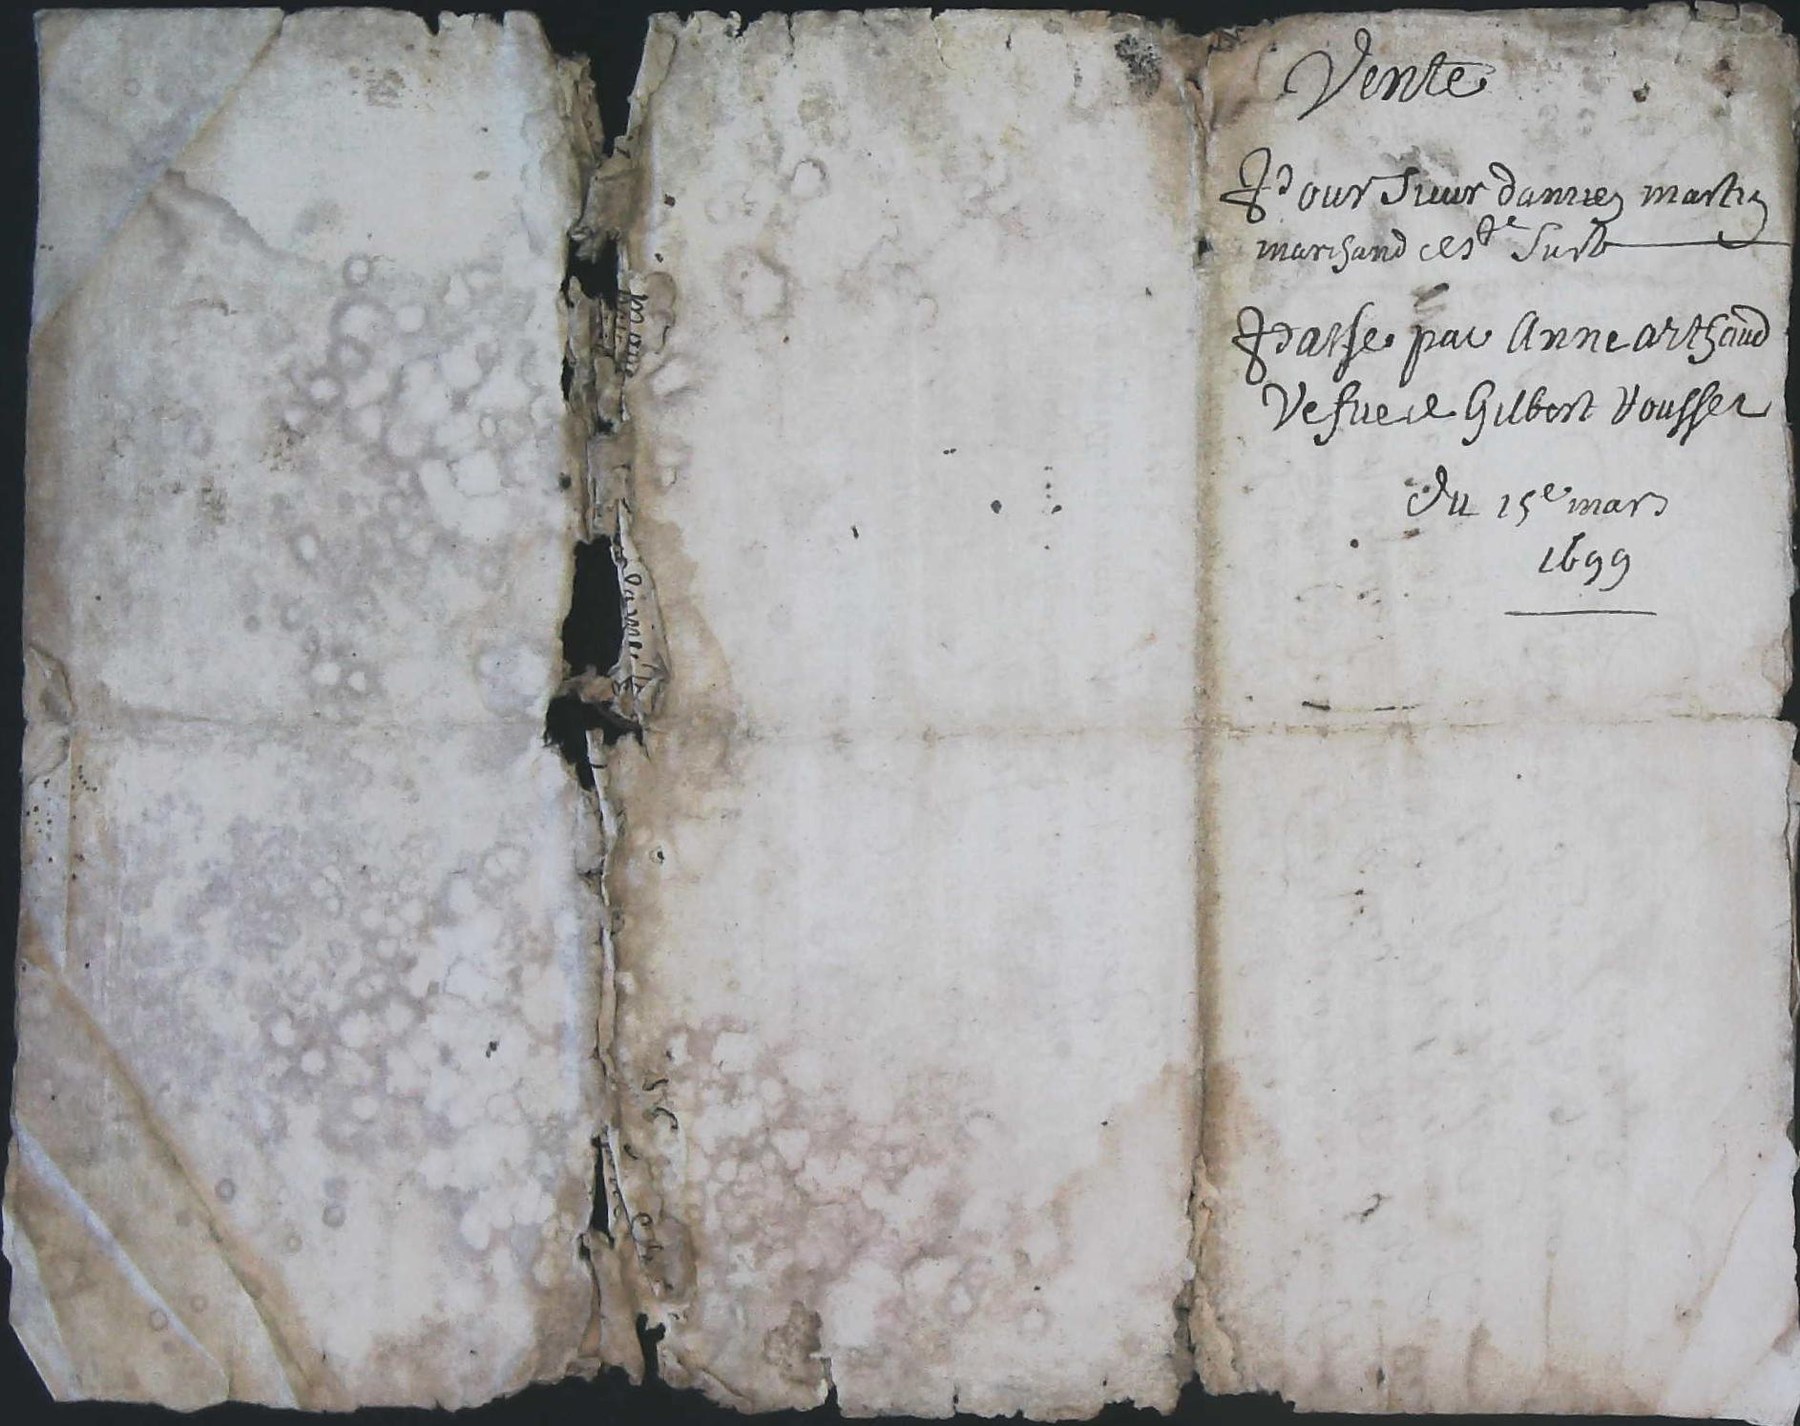 Vente
Pour Sieur damien martin
marchand de St
Passe par Anne arthaud
Vefue de Gilbert Vousser
du 15e mars
1699